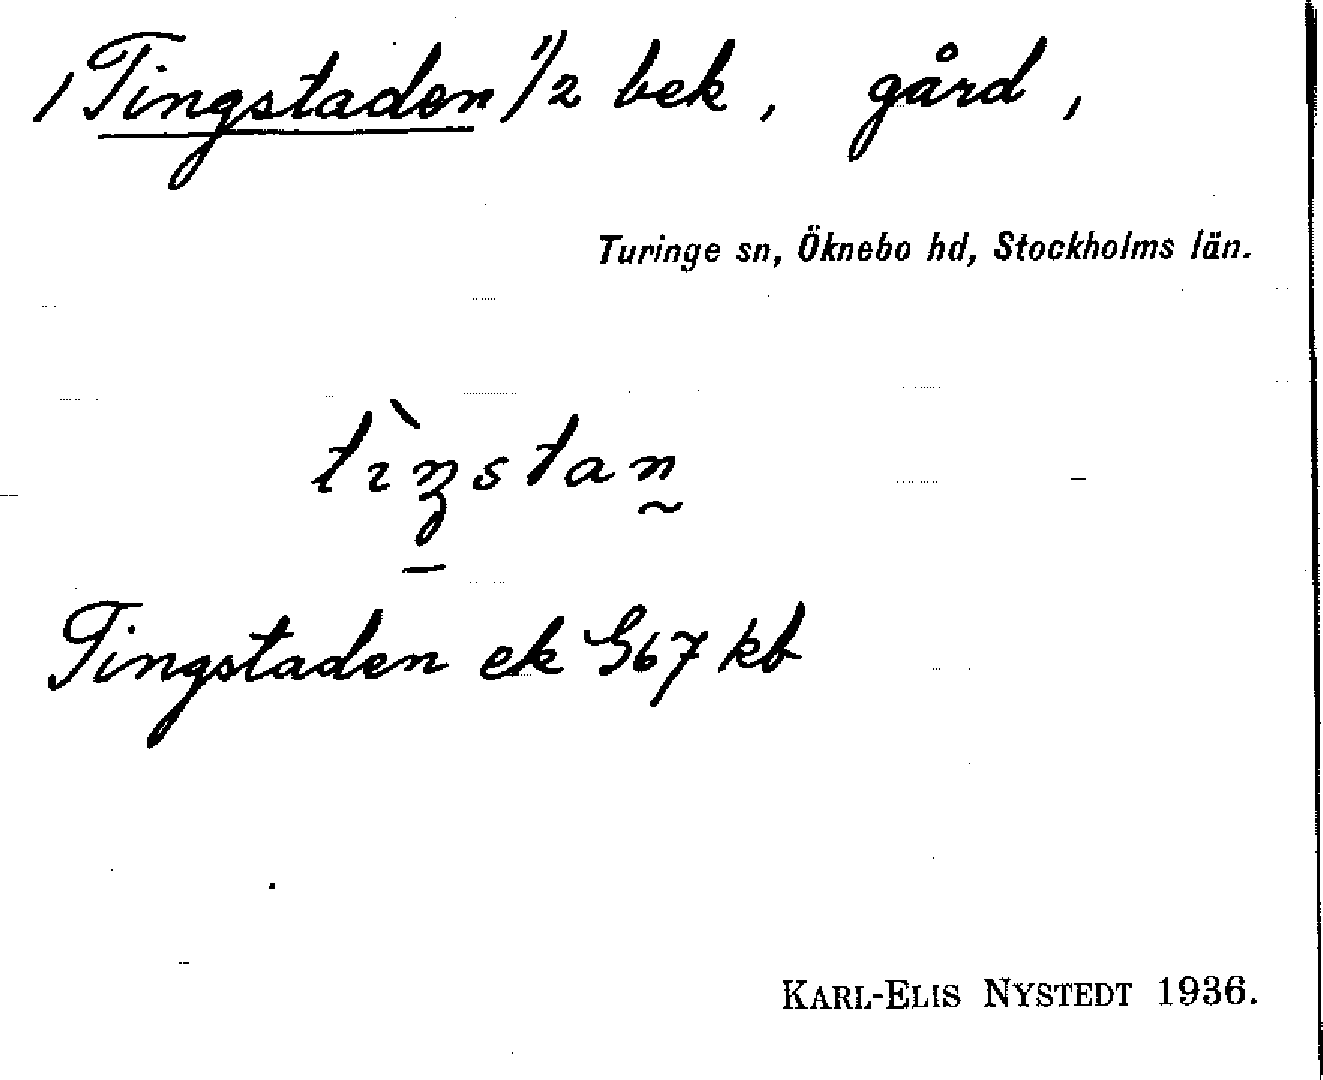 /Tingstaden 1)/2 bek, gård,
Turinge sn, Öknebo hd, Stockholms län.
tìŋstan̰
Tingstaden ek G67 kb
KARL-ELIS NYSTEDT 1936.